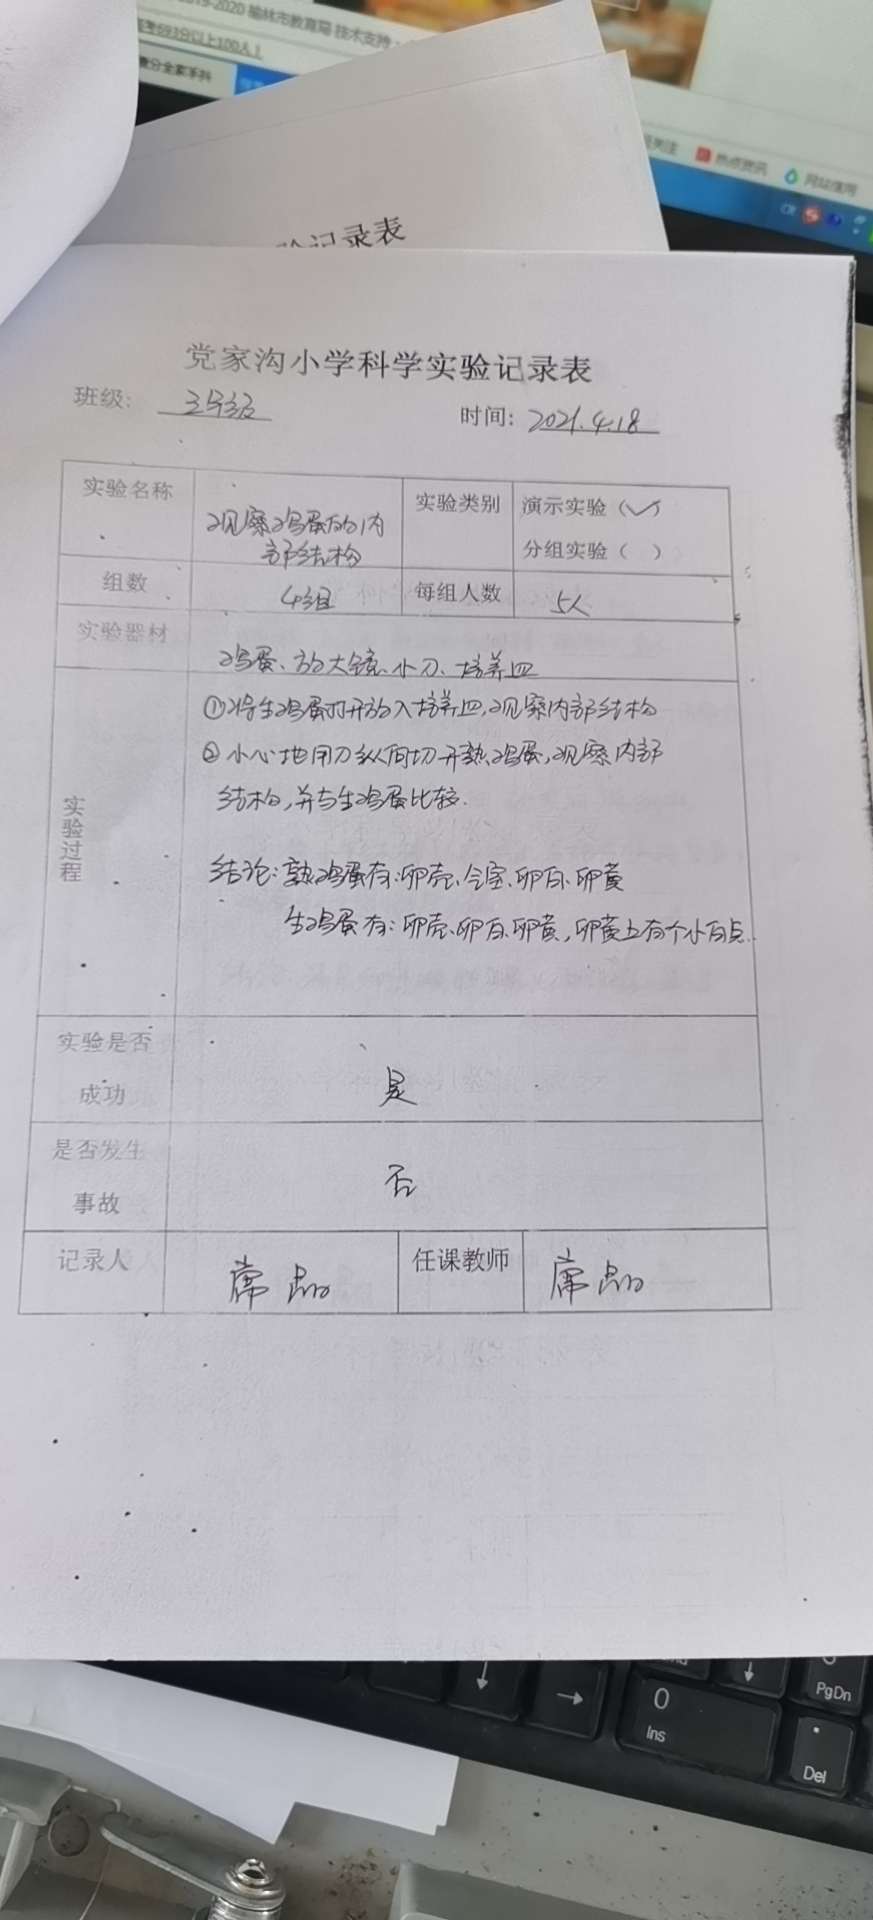 2019-2020 榆林市教育局 技术支持：
高考693分以上100人！
热点资讯
网站信用
验记录表
党家沟小学科学实验记录表
班级： 三年级 时间：2021.4.18
实验名称 观察鸡蛋的内部结构 实验类别 演示实验（✓）
分组实验（ ）
组数 4组 每组人数 5人
实验器材 鸡蛋、放大镜、小刀、培养皿
实验过程
①将生鸡蛋打开放入培养皿，观察内部结构
②小心地用刀纵向切开熟鸡蛋，观察内部
结构，并与生鸡蛋比较.
结论：熟鸡蛋有：卵壳、气室、卵白、卵黄
生鸡蛋有：卵壳、卵白、卵黄，卵黄上有个小白点.
实验是否成功 是
是否发生事故 否
记录人 席 任课教师 席
PgDn
0
Ins
.
Del